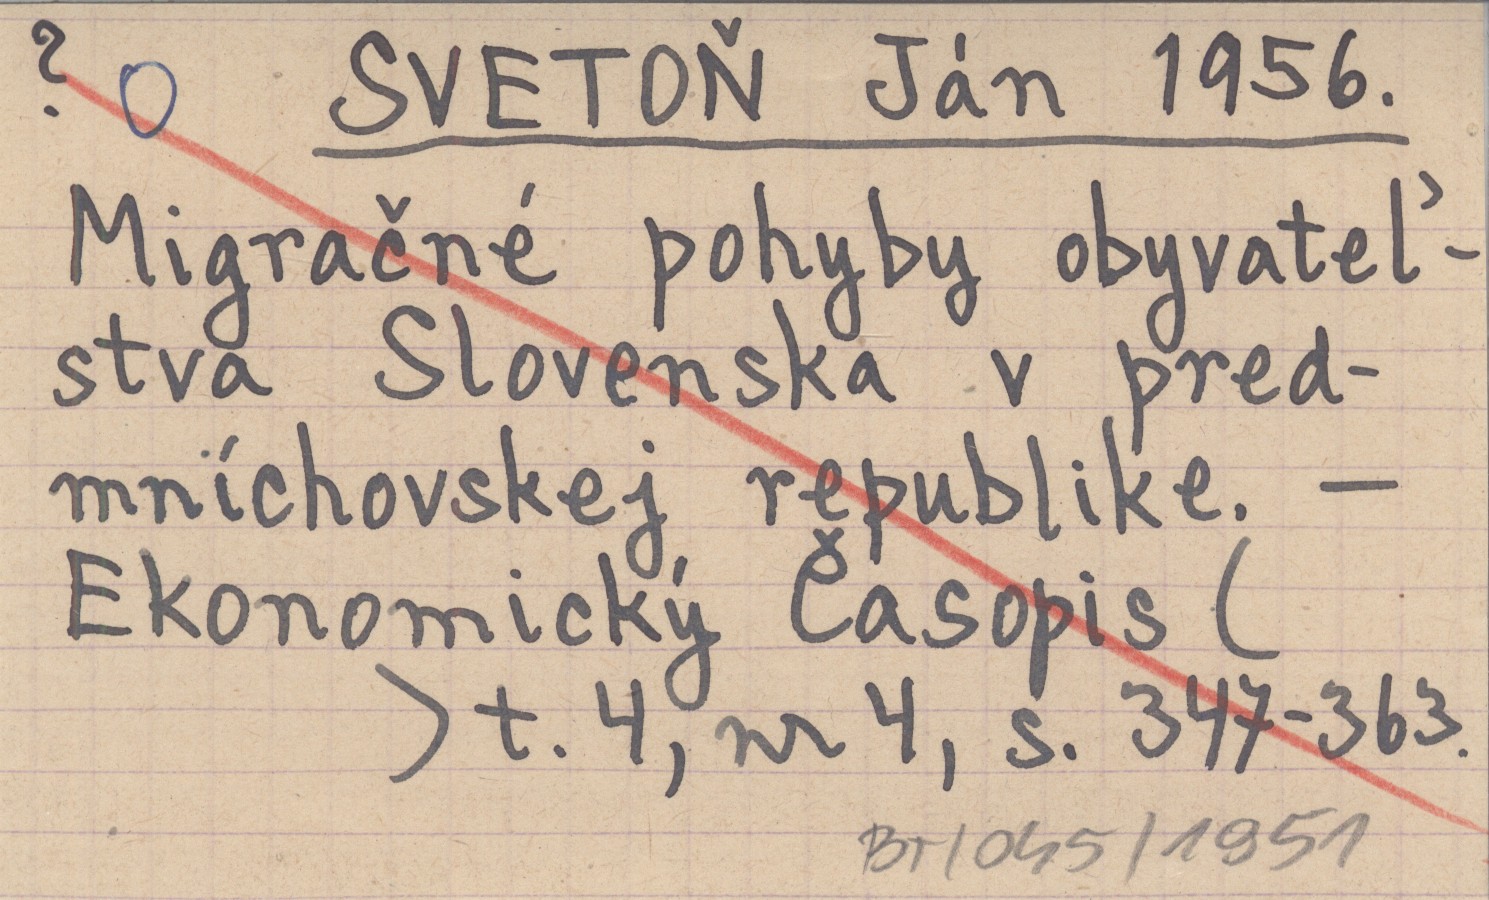 ? O SVETOŇ Ján 1956.
Migračné pohyby obyvateľ-
stva Slovenska v pred-
mníchovskej republike. —
Ekonomický Časopis (
) t. 4, nr 4, s. 347-363.
Br/045/1951